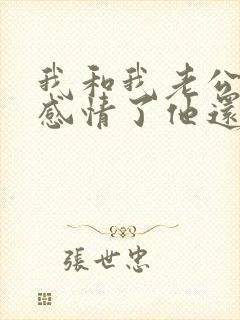 我和我老公
感情了他還
張世忠